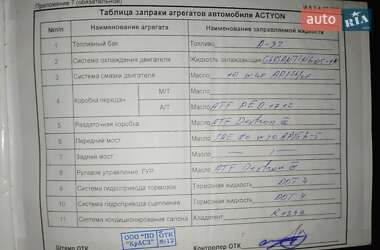 Приложение 7 (обязательное)
AUTO.RIA
Таблица заправки агрегатов автомобиля ACTYON
№п/п Наименование агрегата Наименование заправляемой жидкости
1 Топливный бак Топливо А-92
2 Система охлаждения двигателя Жидкость охлаждающая
3 Система смазки двигателя Масло 10W40
4 Коробка передач М/Т Масло
А/Т Масло ATF
5 Раздаточная коробка Масло ATF Dexron
6 Передний мост Масло
7 Задний мост Масло
8 Рулевое управление ГУР Масло ATF Dexron
9 Система гидропривода тормозов Тормозная жидкость DOT 4
10 Система гидропривода сцепления Тормозная жидкость DOT 4
11 Система кондиционирования салона Хладагент R134a
Штамп ОТК
ООО "ПО "КуАСЗ" ОТК №12
Контролер ОТК